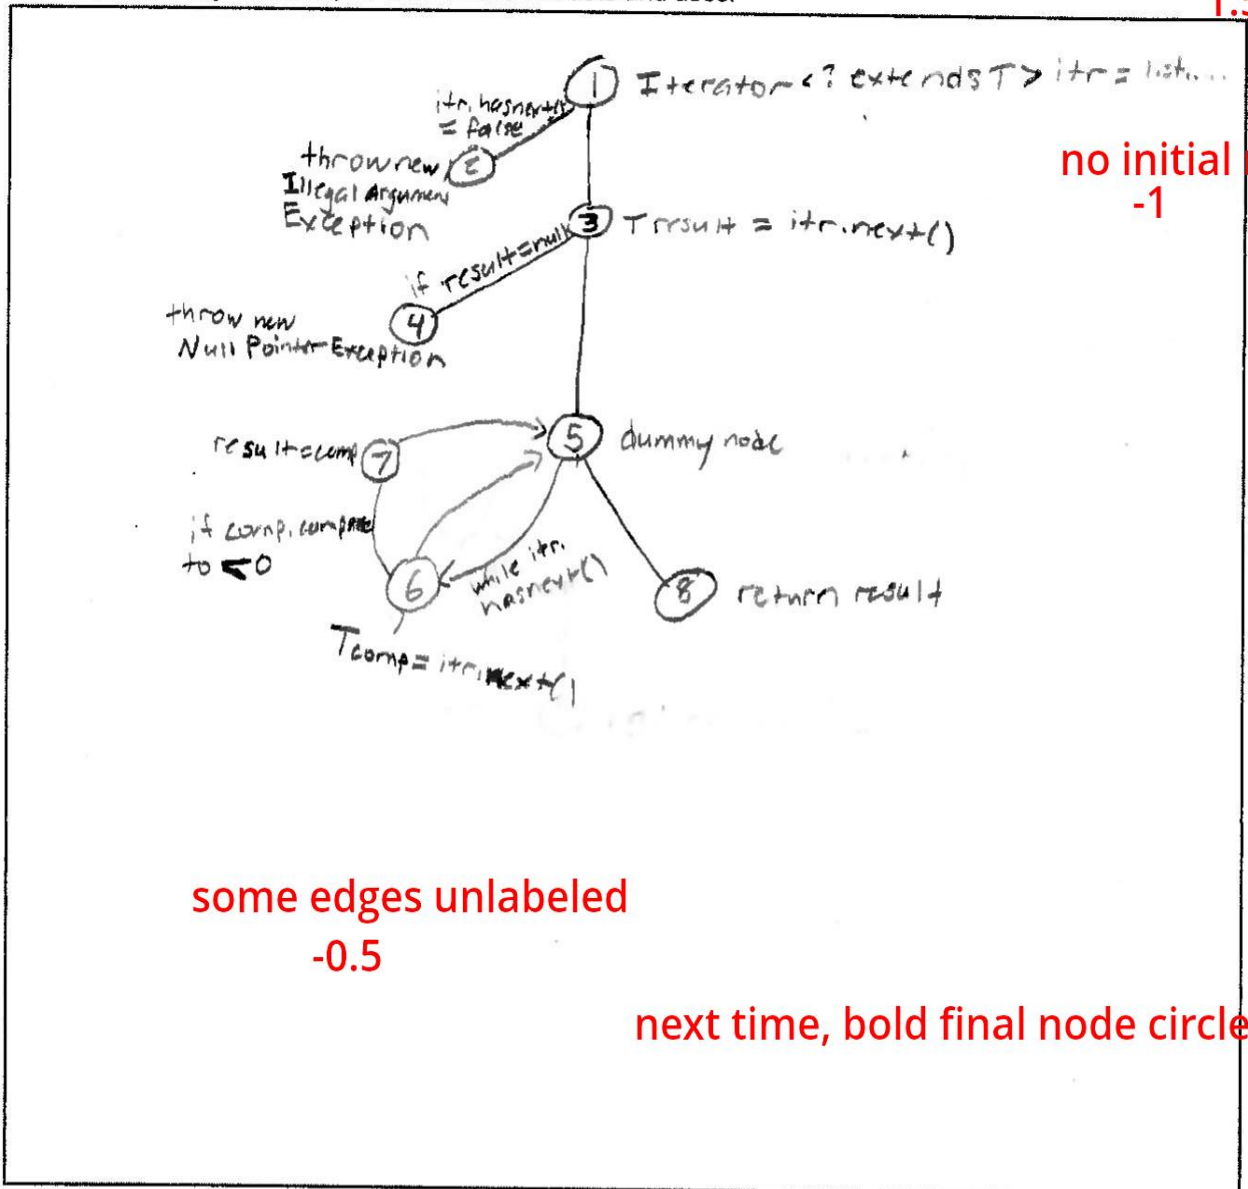 1 Iterator <? extends T> itr = list....
itr.hasnext()
= false
2
throw new
Illegal Argument
Exception
no initial
-1
3 T result = itr.next()
if result=null
4
throw new
Null Pointer Exception
5 dummy node
result=comp 7
if comp.compare
to <0
6
while itr.
hasnext()
8 return result
T comp= itr.next()
some edges unlabeled
-0.5
next time, bold final node circle